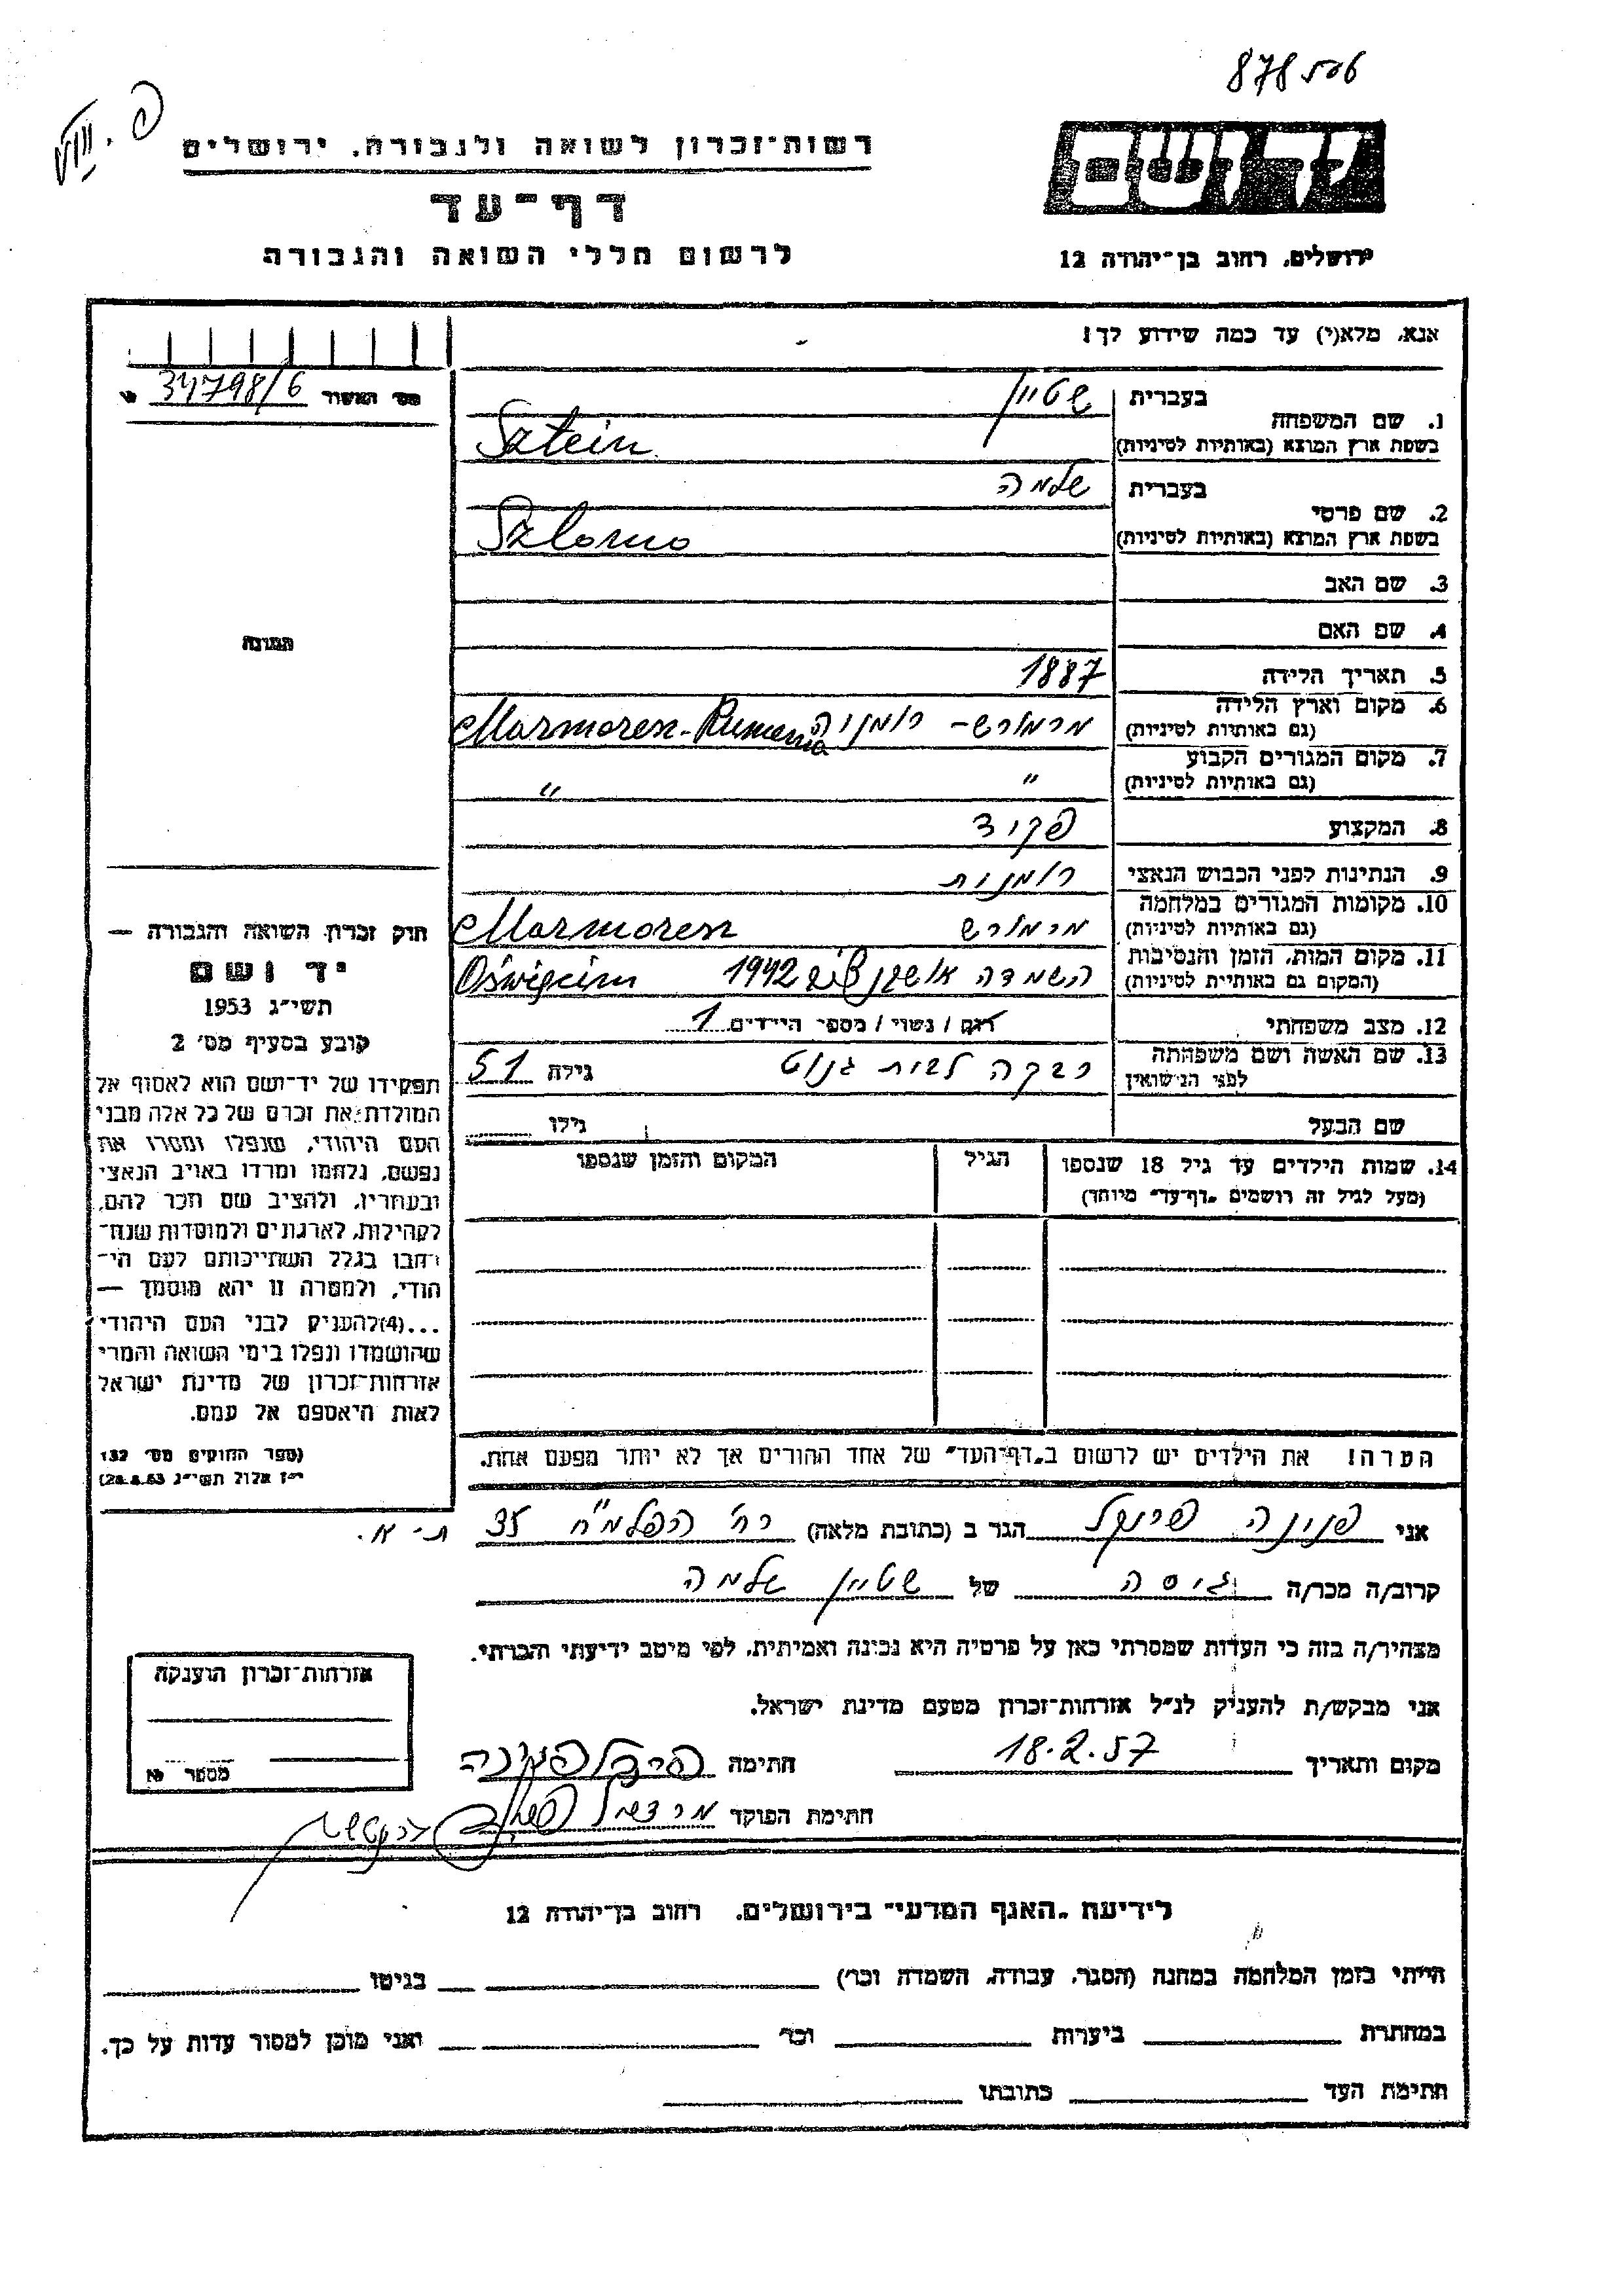 878506
רשות־זכרון לשואה ולגבורה, ירושלים
דף־עד
לרשום חללי השואה והגבורה
יד ושם
ירושלים, רחוב בן־יהודה 12
אנא, מלא(י) עד כמה שידוע לך!
מס׳ האשור 34798/6
1. שם המשפחה בעברית שטיין
בשפת ארץ המוצא (באותיות לטיניות) Sztein
2. שם פרטי בעברית שלמה
בשפת ארץ המוצא (באותיות לטיניות) Szlomo
3. שם האב
4. שם האם
5. תאריך הלידה 1887
6. מקום וארץ הלידה (גם באותיות לטיניות) מרמורש - רומניה Marmoresz-Rumenia
7. מקום המגורים הקבוע (גם באותיות לטיניות) " "
8. המקצוע פקיד
9. הנתינות לפני הכבוש הנאצי רומנית
10. מקומות המגורים במלחמה (גם באותיות לטיניות) מרמורש Marmoresz
11. מקום המות, הזמן והנסיבות (המקום גם באותיות לטיניות) השמדה אושוויץ 1942 Oświęcim
12. מצב משפחתי רוק / נשוי / מספר הילדים 1
13. שם האשה ושם משפחתה לפני הנישואין רבקה לבית גילה 51
שם הבעל גילו
14. שמות הילדים עד גיל 18 שנספו הגיל המקום והזמן שנספו
(מעל לגיל זה רושמים „דף־עד״ מיוחד)
התמונה
חוק זכרון השואה והגבורה —
יד ושם
תשי״ג 1953
קובע בסעיף מס׳ 2
תפקידו של יד־ושם הוא לאסוף אל
המולדת את זכרם של כל אלה מבני
העם היהודי, שנפלו ומסרו את
נפשם, נלחמו ומרדו באויב הנאצי
ובעוזריו, ולהציב שם וזכר להם,
לקהילות, לארגונים ולמוסדות שנח־
רבו בגלל השתייכותם לעם הי־
הודי, ולמטרה זו יהא מוסמך —
...(4)להעניק לבני העם היהודי
שהושמדו ונפלו בימי השואה והמרי
אזרחות־זכרון של מדינת ישראל
לאות היאספם אל עמם.
(ספר החוקים מס׳ 132
י״ז אלול תשי״ג 28.8.53)
הערה! את הילדים יש לרשום ב„דף־העד״ של אחד ההורים אך לא יותר מפעם אחת.
אני פנינה פרנקל הגר ב (כתובת מלאה) רח׳ הפלמ"ח 35 ת-א.
קרוב/ה מכר/ה גיסה של שטיין שלמה
מצהיר/ה בזה כי העדות שמסרתי כאן על פרטיה היא נכונה ואמיתית, לפי מיטב ידיעתי והכרתי.
אני מבקש/ת להעניק לנ״ל אזרחות־זכרון מטעם מדינת ישראל.
מקום ותאריך 18.2.57 חתימה
חתימת הפוקד
אזרחות־זכרון הוענקה
מספר
לידיעת „האגף המדעי״ בירושלים, רחוב בן־יהודה 12
הייתי בזמן המלחמה במחנה (הסגר, עבודה, השמדה וכו׳) בגיטו
במחתרת ביערות וכו׳ ואני מוכן למסור עדות על כך.
חתימת העד כתובתו